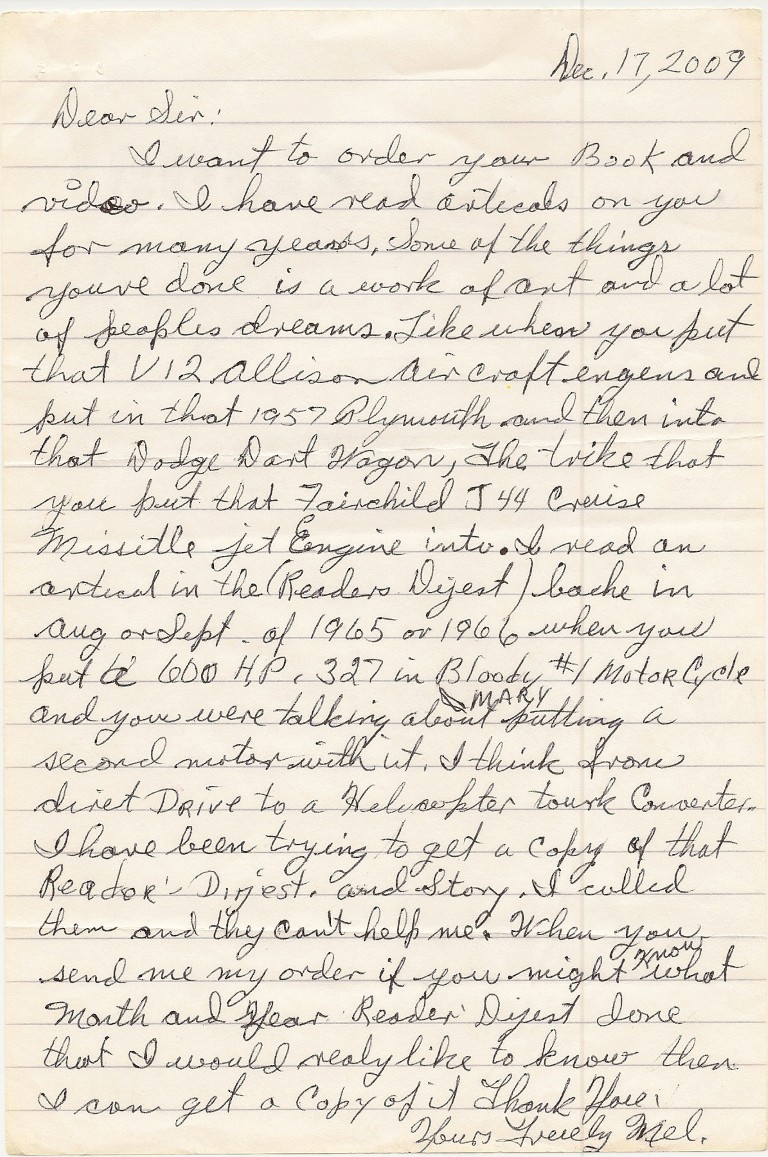 Dec. 17, 2009
Dear Sir:
I want to order your Book and
video. I have read articals on you
for many years, Some of the things
youve done is a work of art and a lot
of peoples dreams. Like when you put
that V12 Allison Air craft engens and
put in that 1957 Plymouth and then into
that Dodge Dart Wagon, The trike that
you put that Fairchild J44 Cruise
Missitle jet Engine into. I read an
artical in the (Readers Dijest) backe in
Aug or Sept. of 1965 or 1966 when you
put a 600 H.P. 327 in Bloody #1 MotorCycle
MARY
and you were talking about putting a
second motor with it. I think
diret DRIVE to a Helicopter tourk Converter.
I have been trying to get a copy of that
Reader' Dirjest. and Story. I called
them and they can't help me. When you
send me my order if you might know what
Month and Year Reader' Dijest done
that I would realy like to know then
I can get a Copy of it Thank You.
Yours Truely Mel.